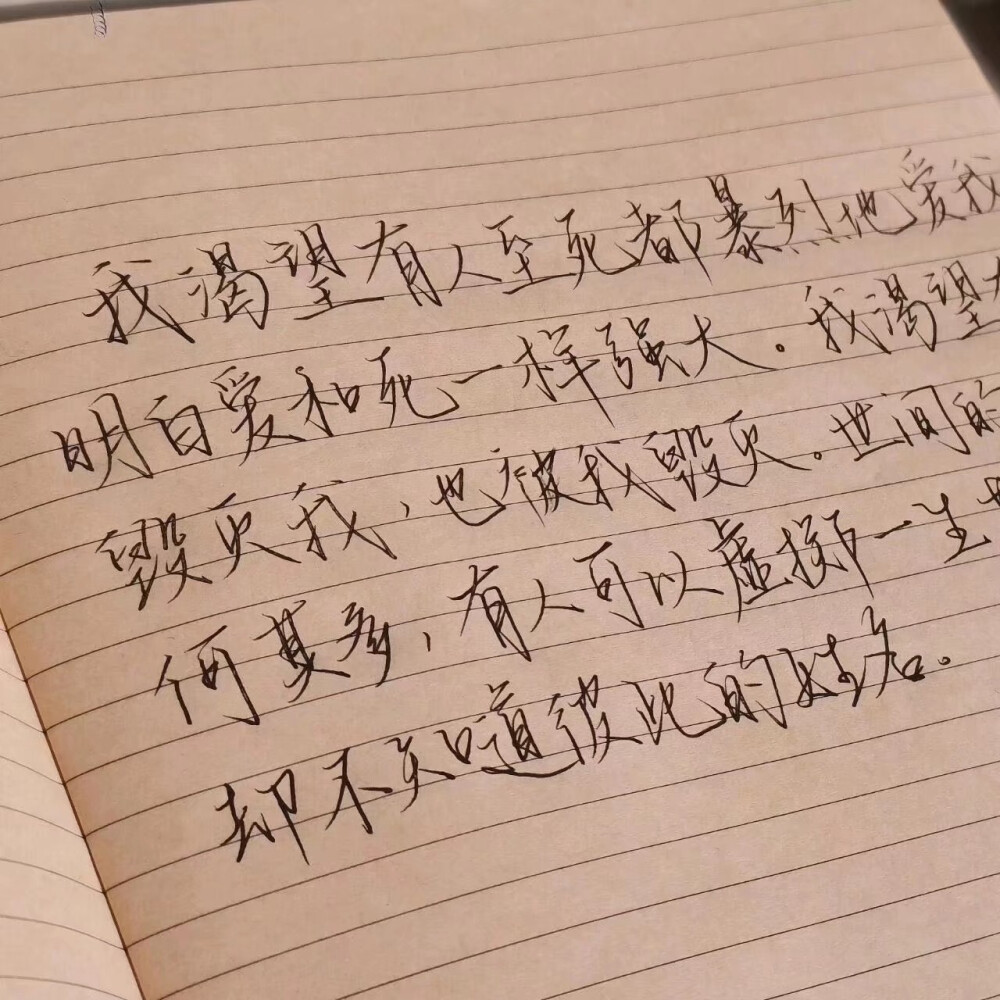 我渴望有人至死都暴烈地爱我
明白爱和死一样强大。我渴望
毁灭我,也被我毁灭。世间的
何其多,有人可以虚掷一生
却不知道彼此的姓名。